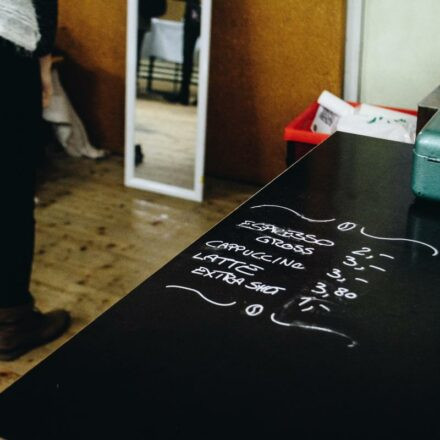 ESPRESSO 2,-
GROSS 3,-
CAPPUCCINO 3,-
LATTE 3,80
EXTRA SHOT 1,-